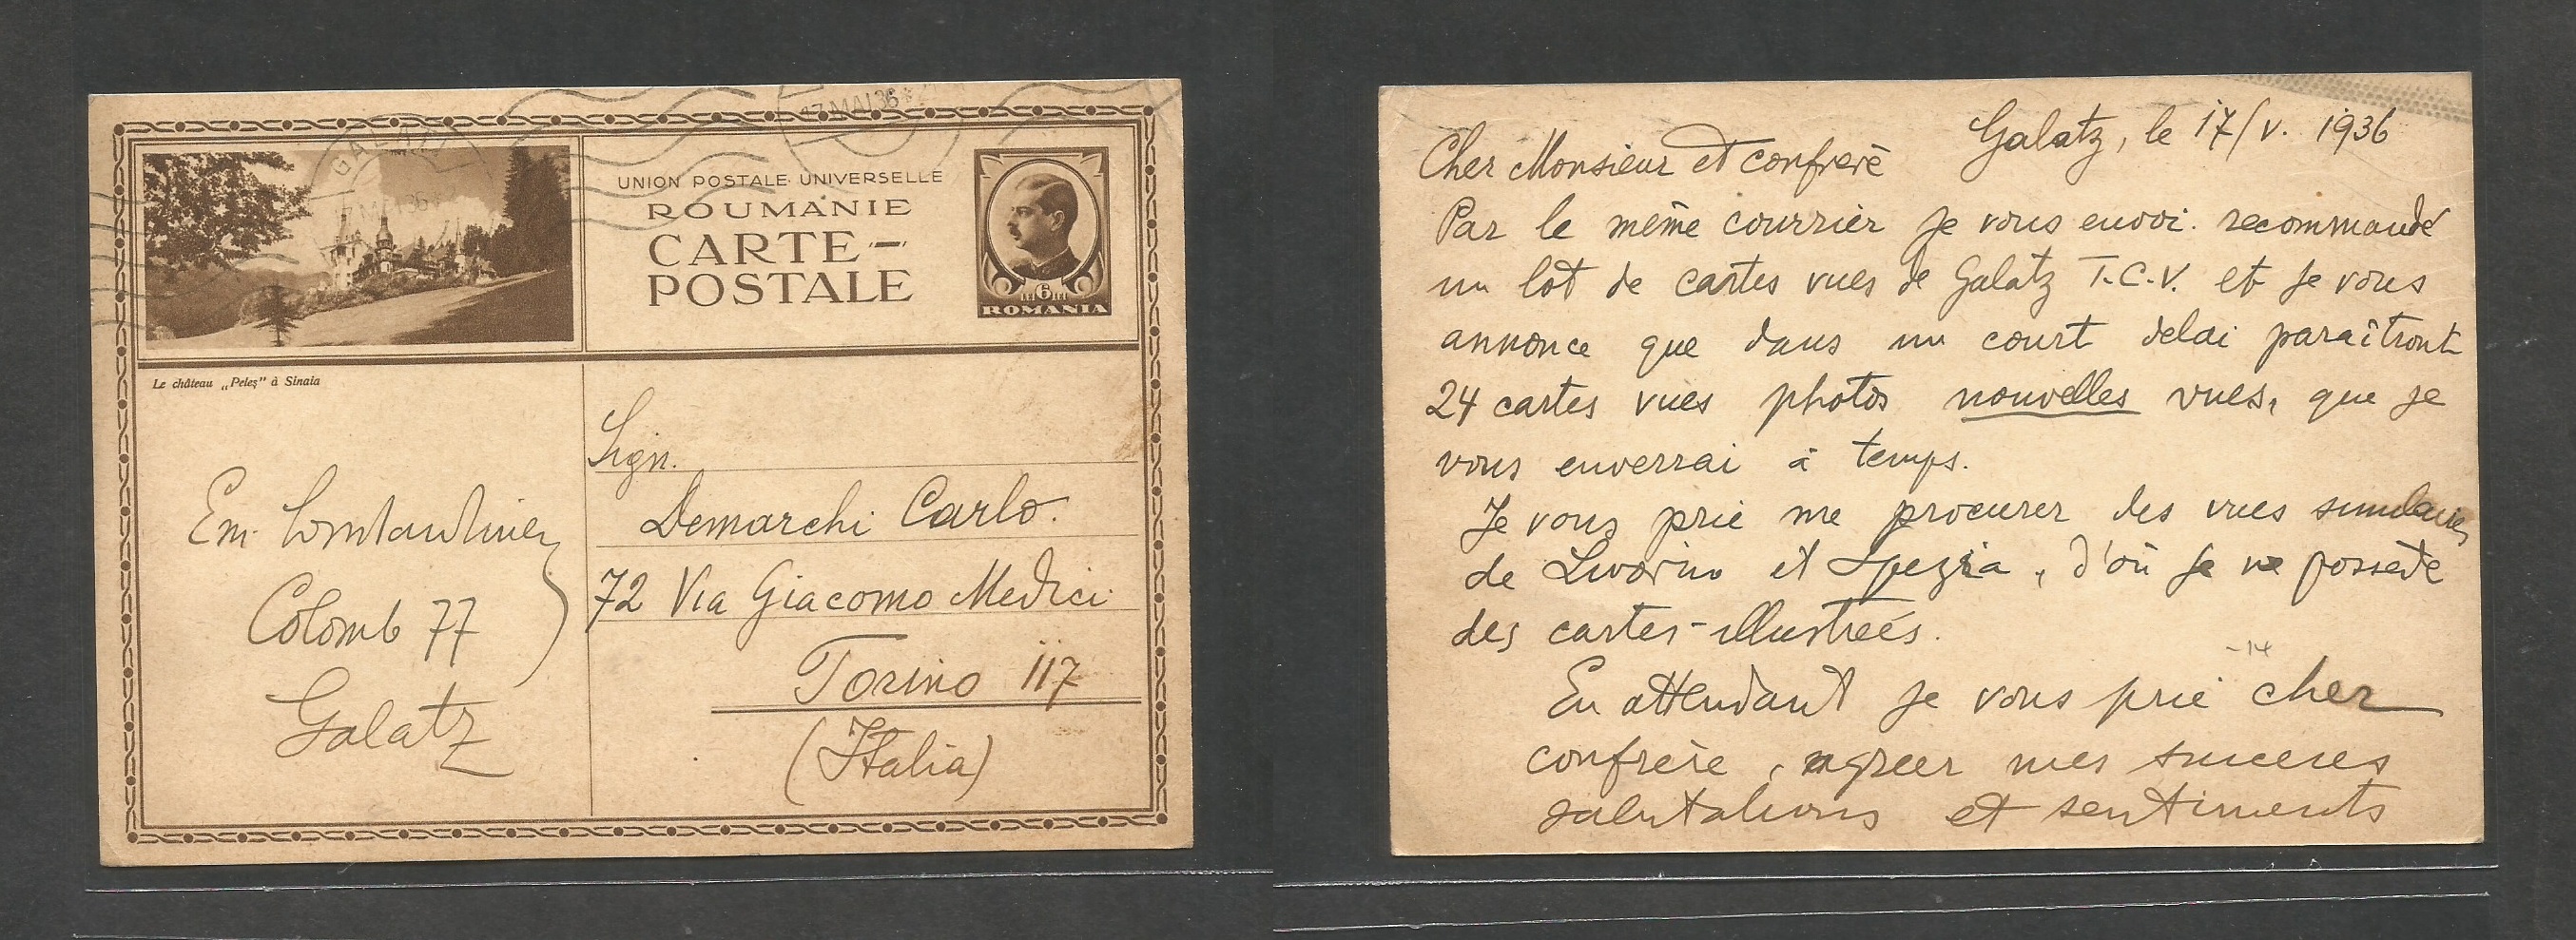 GALATI
17 MAI 36
17 MAI 36
UNION POSTALE UNIVERSELLE
ROUMANIE
CARTE-
POSTALE
6
ROMANIA
Le château „Peleș” à Sinaia
Em.
Colomb 77
Galatz
Sign.
Demarchi Carlo.
72 Via Giacomo Medici
Torino 117
(Italia)
Galatz, le 17/V. 1936
Cher Monsieur et confrerè
Par le même courrier je vous envoi. recommandé
un lot de cartes vues de Galatz T.C.V. et je vous
annonce que dans un court delai paraîtront
24 cartes vues photos nouvelles vues, que je
vous enverrai à temps.
Je vous prie me procurer des vues similaires
de Livorino et Spezia, d'où je ne possede
des cartes-illustreés.
-14
En attendant je vous prie cher
confrère, agreer mes sinceres
salutations et sentiments